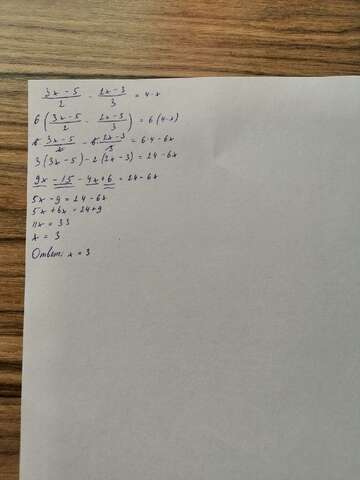 (3x-5)/2 - (2x-3)/3 = 4-x
6((3x-5)/2 - (2x-3)/3) = 6(4-x)
6·(3x-5)/2 - 6·(2x-3)/3 = 6·4-6x
3(3x-5)-2(2x-3)=24-6x
9x-15-4x+6=24-6x
5x-9=24-6x
5x+6x=24+9
11x=33
x=3
Ответ: x=3